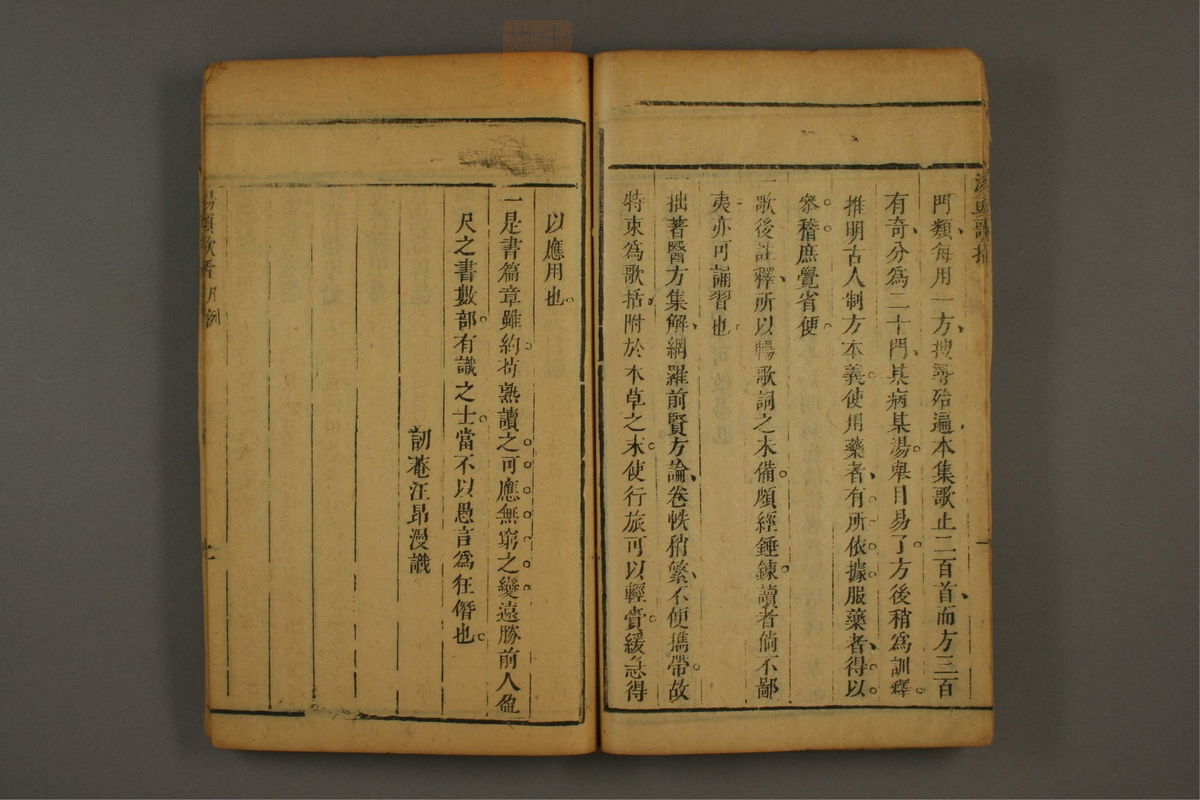 門類每用一方搜尋殆遍本集歌止二百首而方三百
有奇分為二十門某病某湯舉目易了方後稍為訓釋
推明古人制方本義使用藥者有所依據服藥者得以
叅稽庶覺省便
一歌後註釋所以暢歌詞之未備頗經錘鍊讀者倘不鄙
夷亦可誦習也
一拙著醫方集解網羅前賢方論卷帙稍繁不便攜帶故
特束為歌括附於本草之末使行旅可以輕賫緩急得
以應用也
一是書篇章雖約苟熟讀之可應無窮之變遠勝前人盈
尺之書數部有識之士當不以愚言為狂僭也
訒菴汪昂漫識
湯頭歌括 凡例